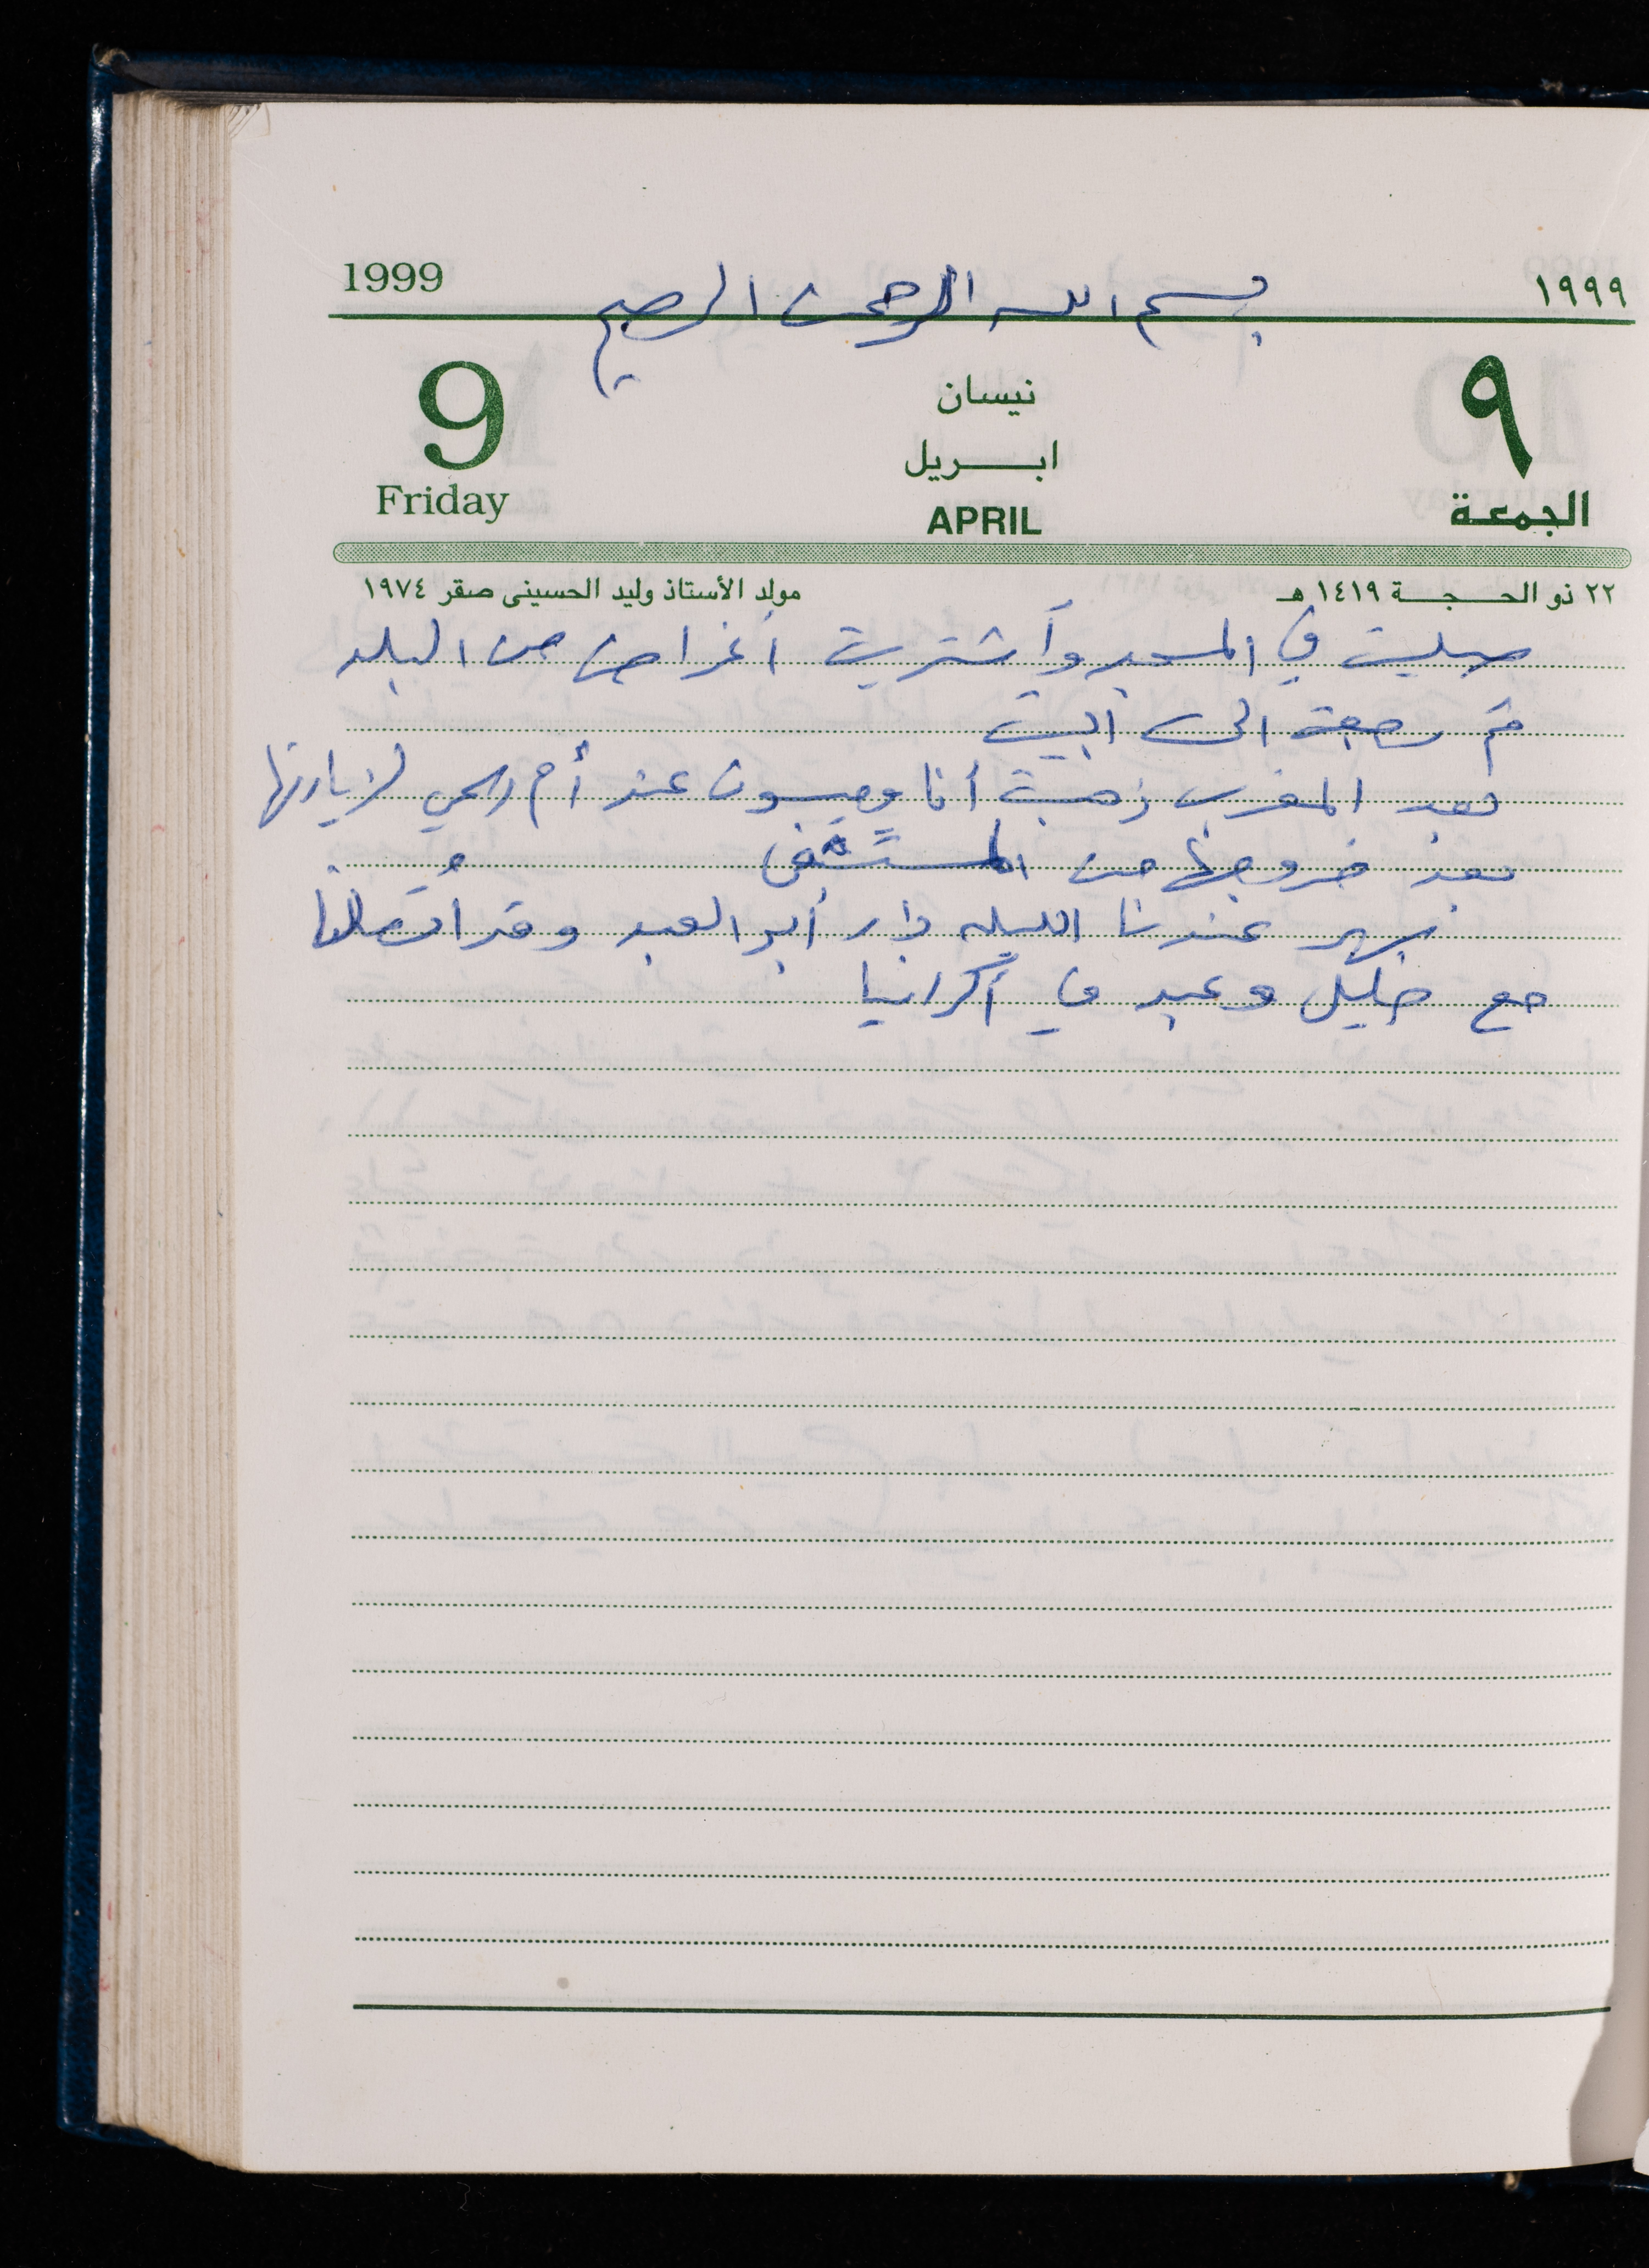 1999 بسم الله الرحمن الرحيم ١٩٩٩
9 نيسان ٩
ابريل
Friday APRIL الجمعة
٢٢ ذو الحجة ١٤١٩ هـ مولد الأستاذ وليد الحسينى صقر ١٩٧٤
صليت في المسجد وآشتريت أغراض من البلد
ثم رجعت الى البيت
بعد المغرب ذهبت أنا وميسون عند أم راجي لزيارتها
بعد خروجها من المستشفى
سهر عندنا الليله دار أبو العبد وقد أتصلنا
مع خليل وعبد في أكرانيا